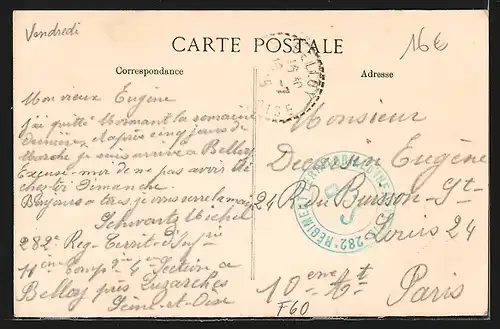 Vendredi
16€
CARTE POSTALE
Correspondance
Adresse
Mon vieux Eugène
J'ai quitté Mormant la semaine
dernière et après cinq jours de
marche je suis arrivé à Belloy
Excuse-moi de ne pas avoir été
chez toi Dimanche.
Bonjours a tres, je vous serre la main
Schwartz Michel
282e Reg-Territ-d'Infie
11ème Compie 4ème Section a
Belloy près Luzarches
Seine-et-Oise
Monsieur
Decarsin Eugène
24 R. du Buisson-St-
Louis 24
10eme At
Paris
F60
BELLOY
282e REGIMENT TERRITORIAL D'INFANTERIE